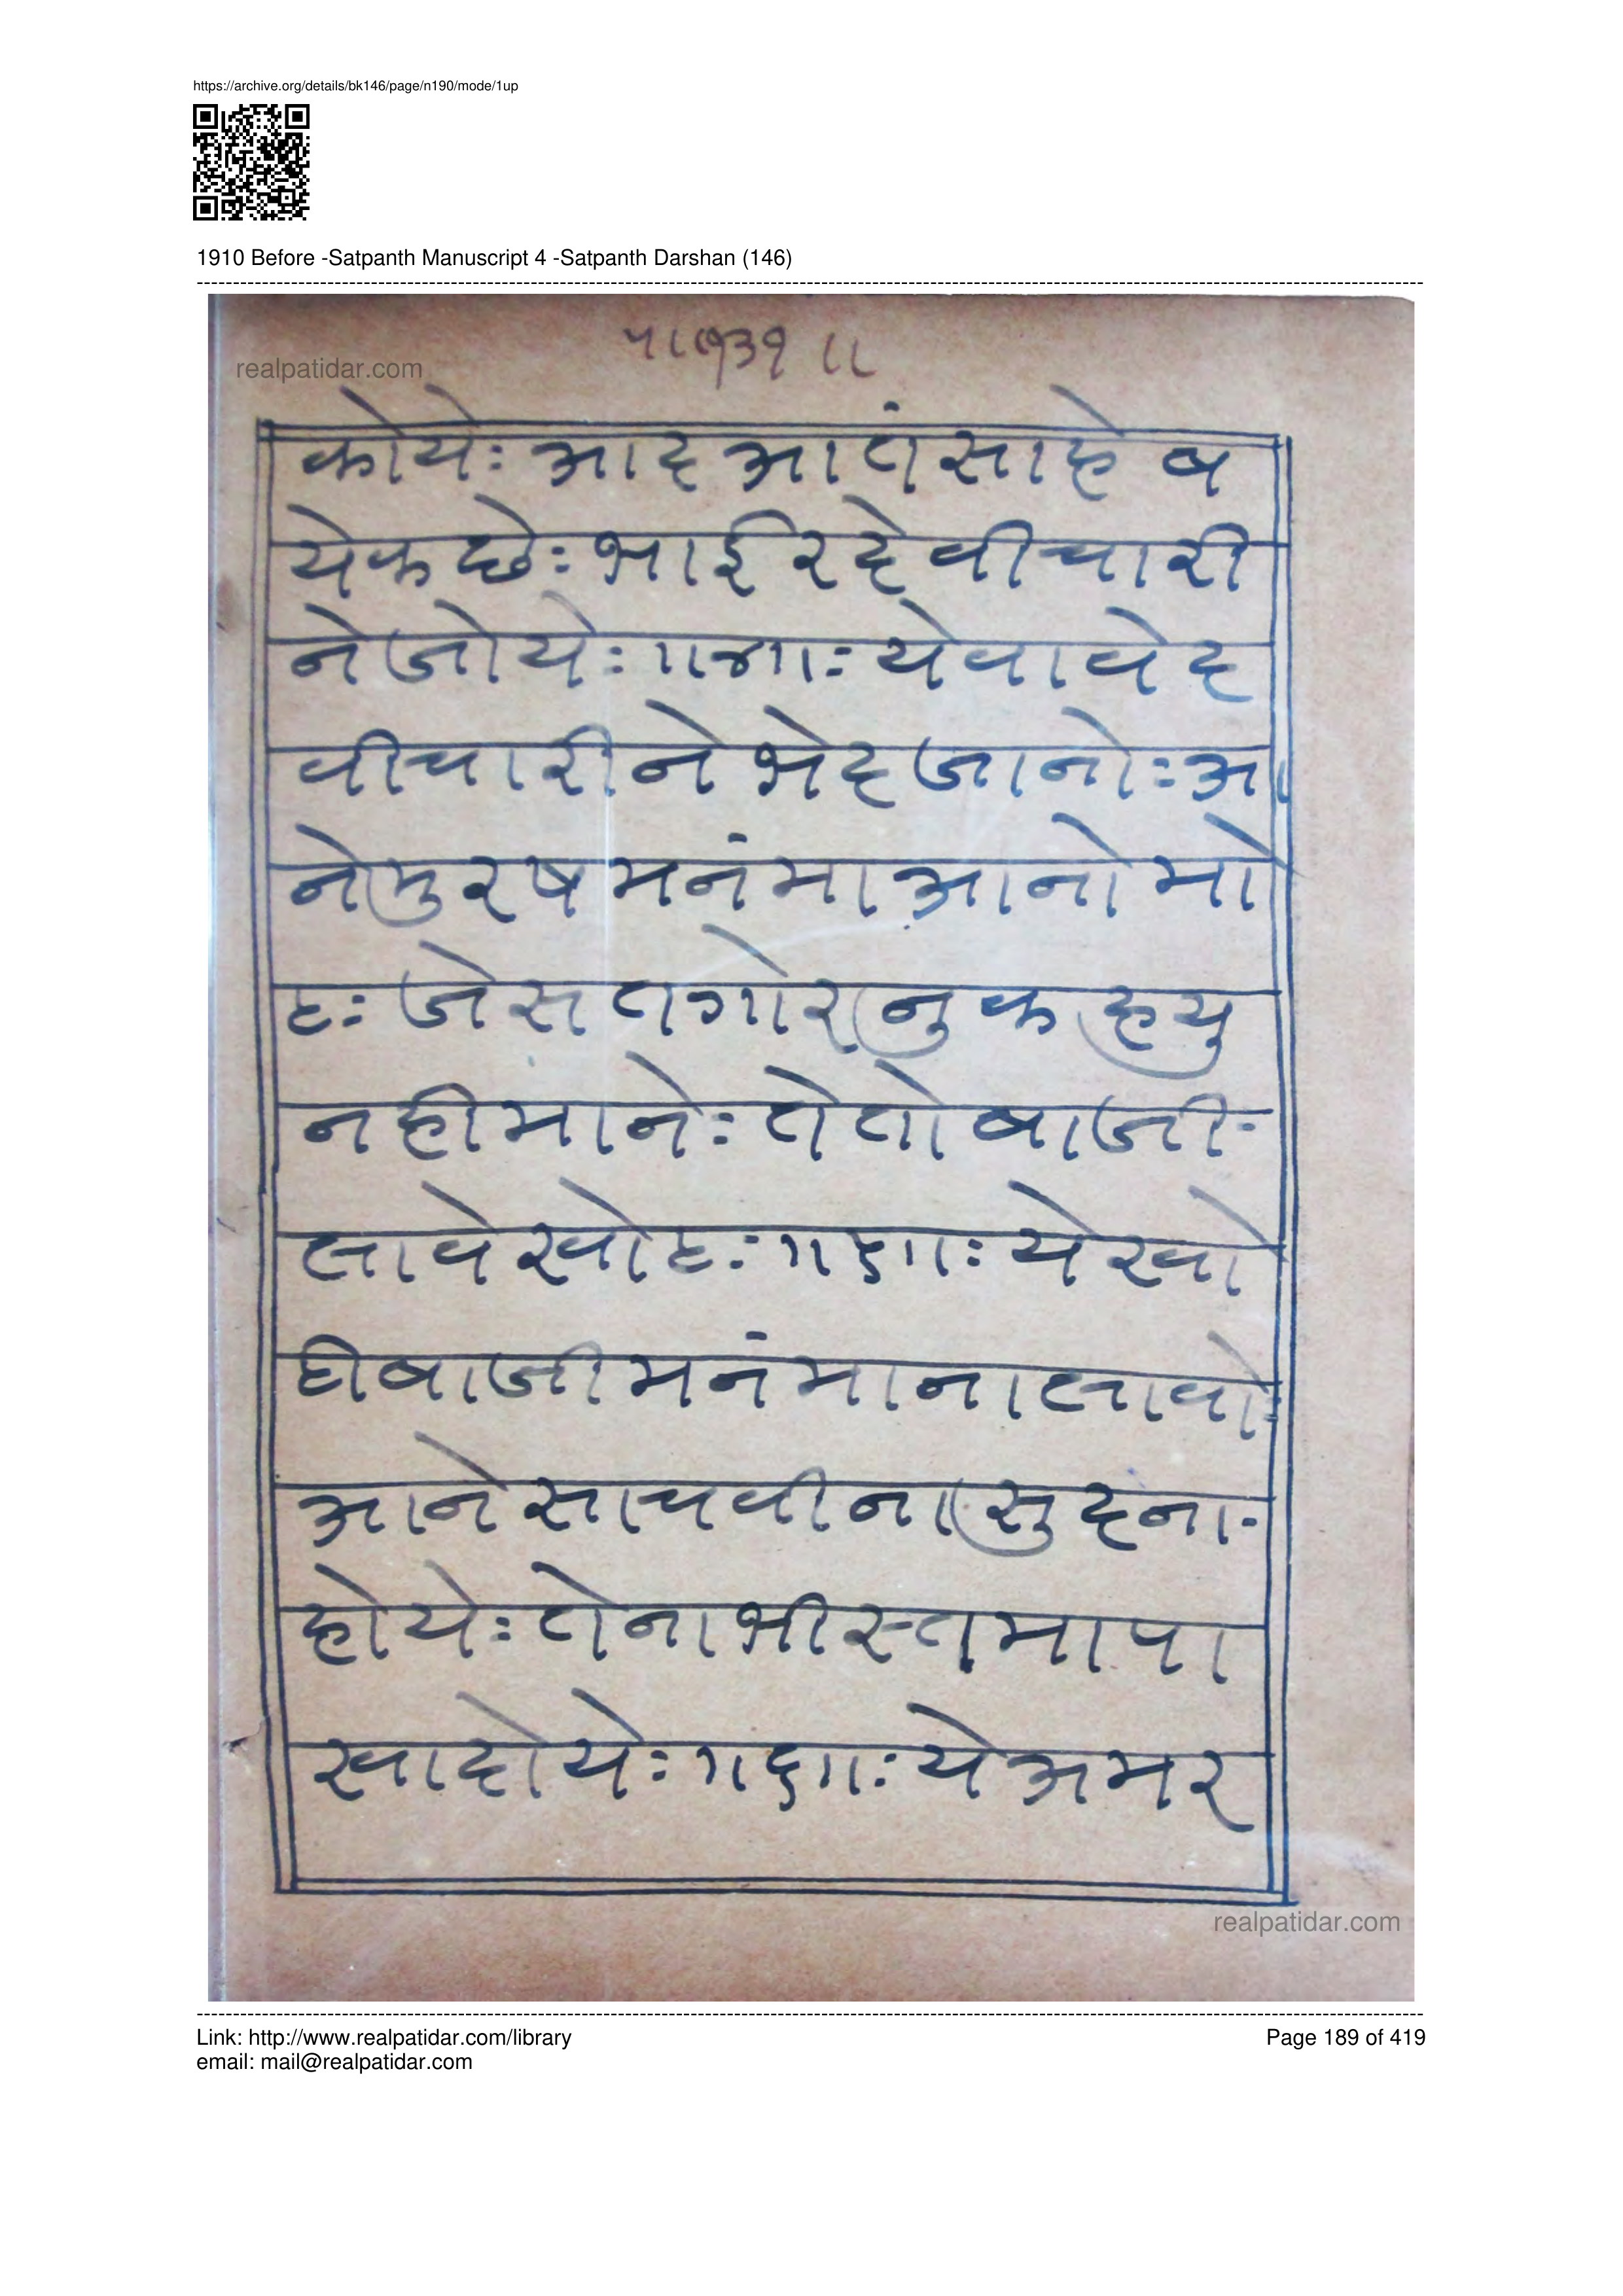 https://archive.org/details/bk146/page/n190/mode/1up
1910 Before -Satpanth Manuscript 4 -Satpanth Darshan (146)
realpatidar.com
प॥१३१॥
कोये: आद आतं साहेब
येक छे: भाई रदे वीचारी
ने जोये: ॥४॥: येवा वेद
वीचारी ने भेद जानो: आ
ने मुरष मनंमा आनो मो
ह: जे सतगोर नु कह्यु
नही माने: ते तो बाजी-
लावे खोट: ॥५॥: ये खो
टी बाजी मनंमा ना लावो:
आने साच वीना सुद ना-
होये: तेना भीस्तमा पा
खा दोये: ॥६॥: ये अमर
realpatidar.com
Link: http://www.realpatidar.com/library
Page 189 of 419
email: mail@realpatidar.com